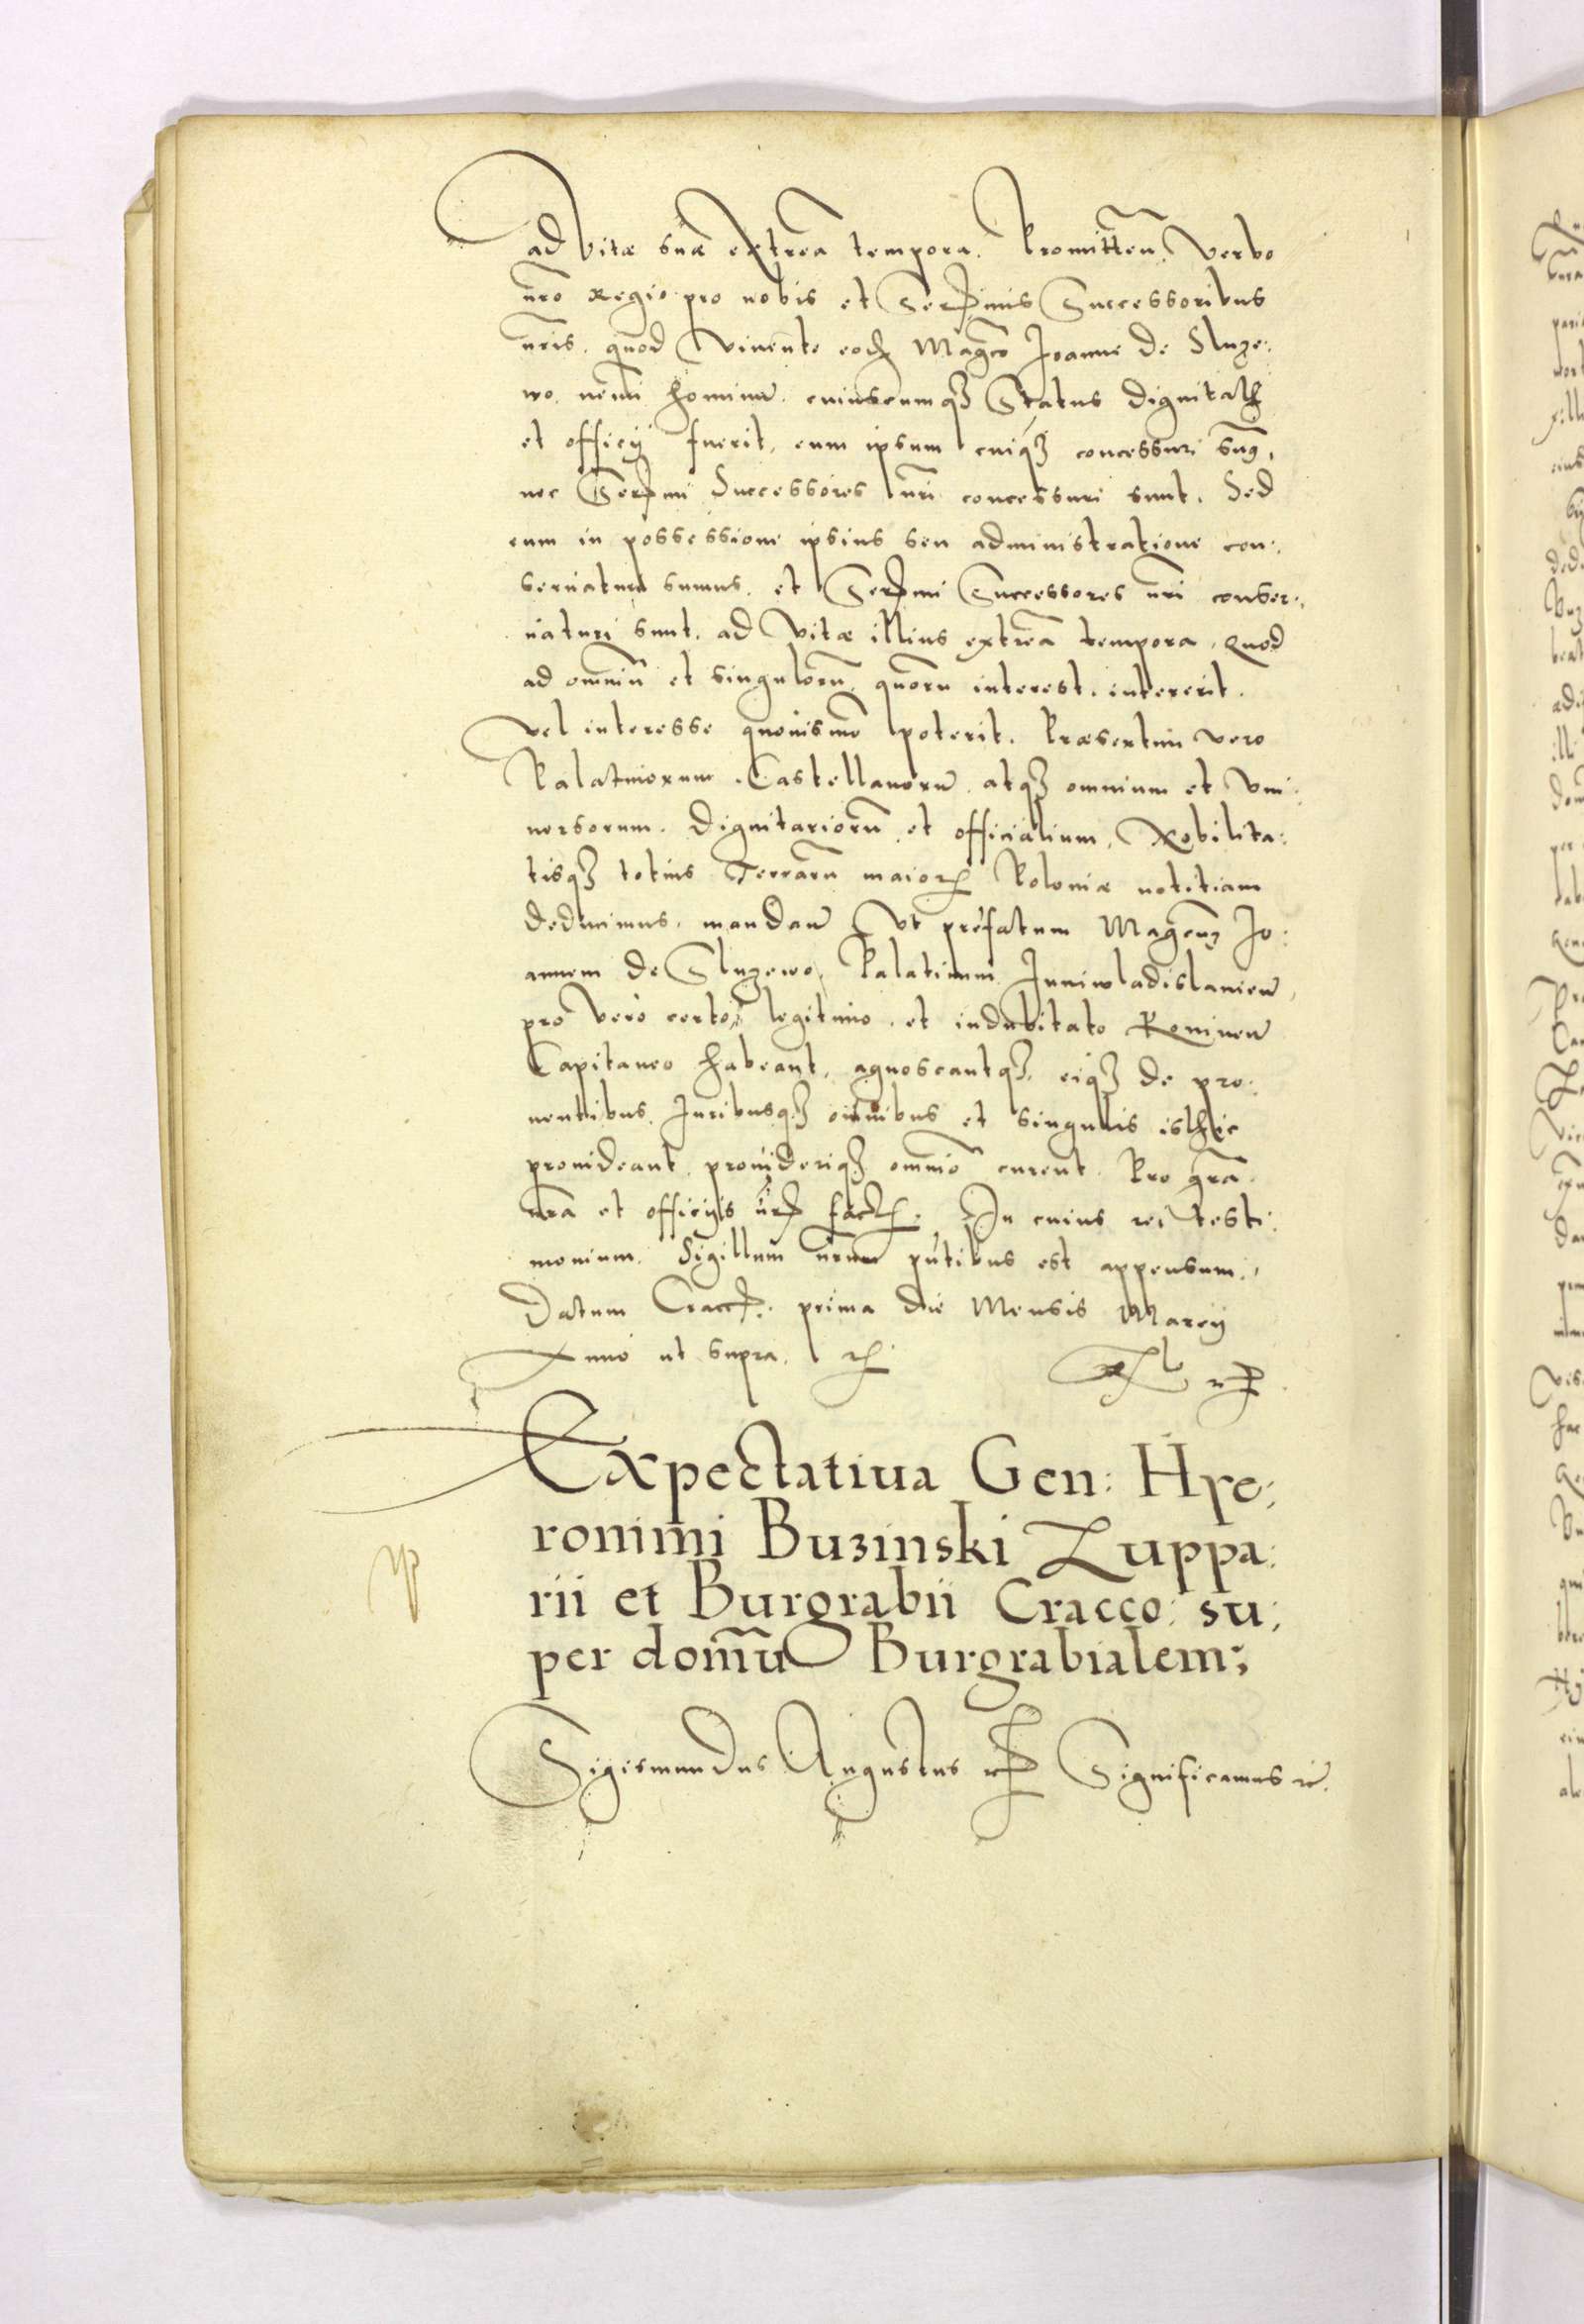 ad vitæ suæ extrea tempora. Promitten. verbo
nr̃o Regio pro nobis et Sermis Successoribus
nr̃is. quod vivente eod Magco Joanne de Sluze:
wo. nemi hominũ. cuiuscumqʒ Status dignitatis
et officij fuerit, eum ipsum cuiqʒ concessuri sum9,
nec Sermi Successores nr̃i concessuri sunt. Sed
eum in possessione ipsius seu administratione con:
servaturi sumus. et Sermi Successores nr̃i conser:
vaturi sunt. ad vitæ illius extrea tempora. Quod
ad omniũ et singulorũ, quorũ interest. intererit.
vel interesse quovismõ poterit. Præsertim vero
Palatinorum. Castellanorũ. atqʒ omnium et vni:
versorum. dignitariorũ et officialium, Nobilita:
tisqʒ totius Terrarũ maioris Poloniæ notitiam
deducimus. mandañ Ut prefatum Magcum Jo:
annem de Sluzewo, Palatinum Juniwladislavieñ,
pro vero certo, legitimo. et indubitato Konineñ
Capitaneo habeant, agnoscantqʒ. eiqʒ de pro:
ventibus. Juribusqʒ omnibus et singulis isthic
provideant. provideriqʒ omnino curent. Pro gr̃a
nr̃a et officijs In cuius rei testi:
monium. Sigillum nr̃um pñtibus est appensum.
Datum Cracc. prima die Mensis Marcij
Anno ut supra.
Expectatiua Gen: Hye:
ronimi Buzinski Zuppa:
rii et Burgrabii Cracco: su:
per domũ Burgrabialem;
Sigismundus Augustus Significamus